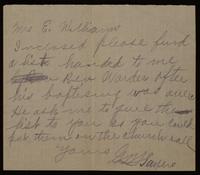 Mrs E. William
Inclosed please find
a list handed to me
Rev Warder after
his baptising was over
He ask me to give the
list to you so you could
put them on the church roll
Yours